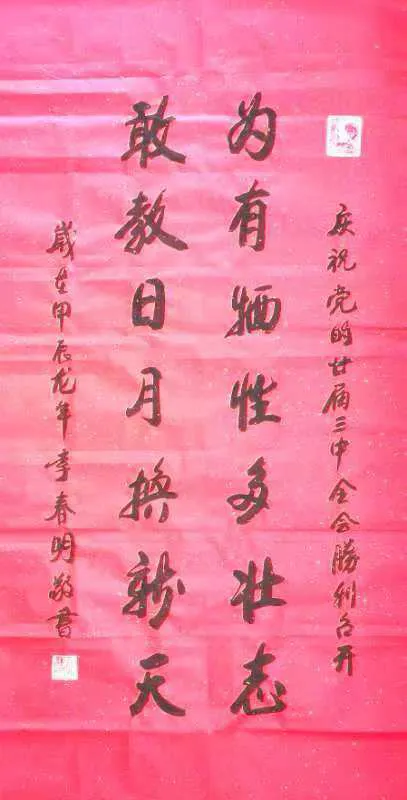 庆祝党的廿届三中全会勝利召开
为有牺牲多壮志
敢教日月换新天
歲在甲辰龙年李春明敬書